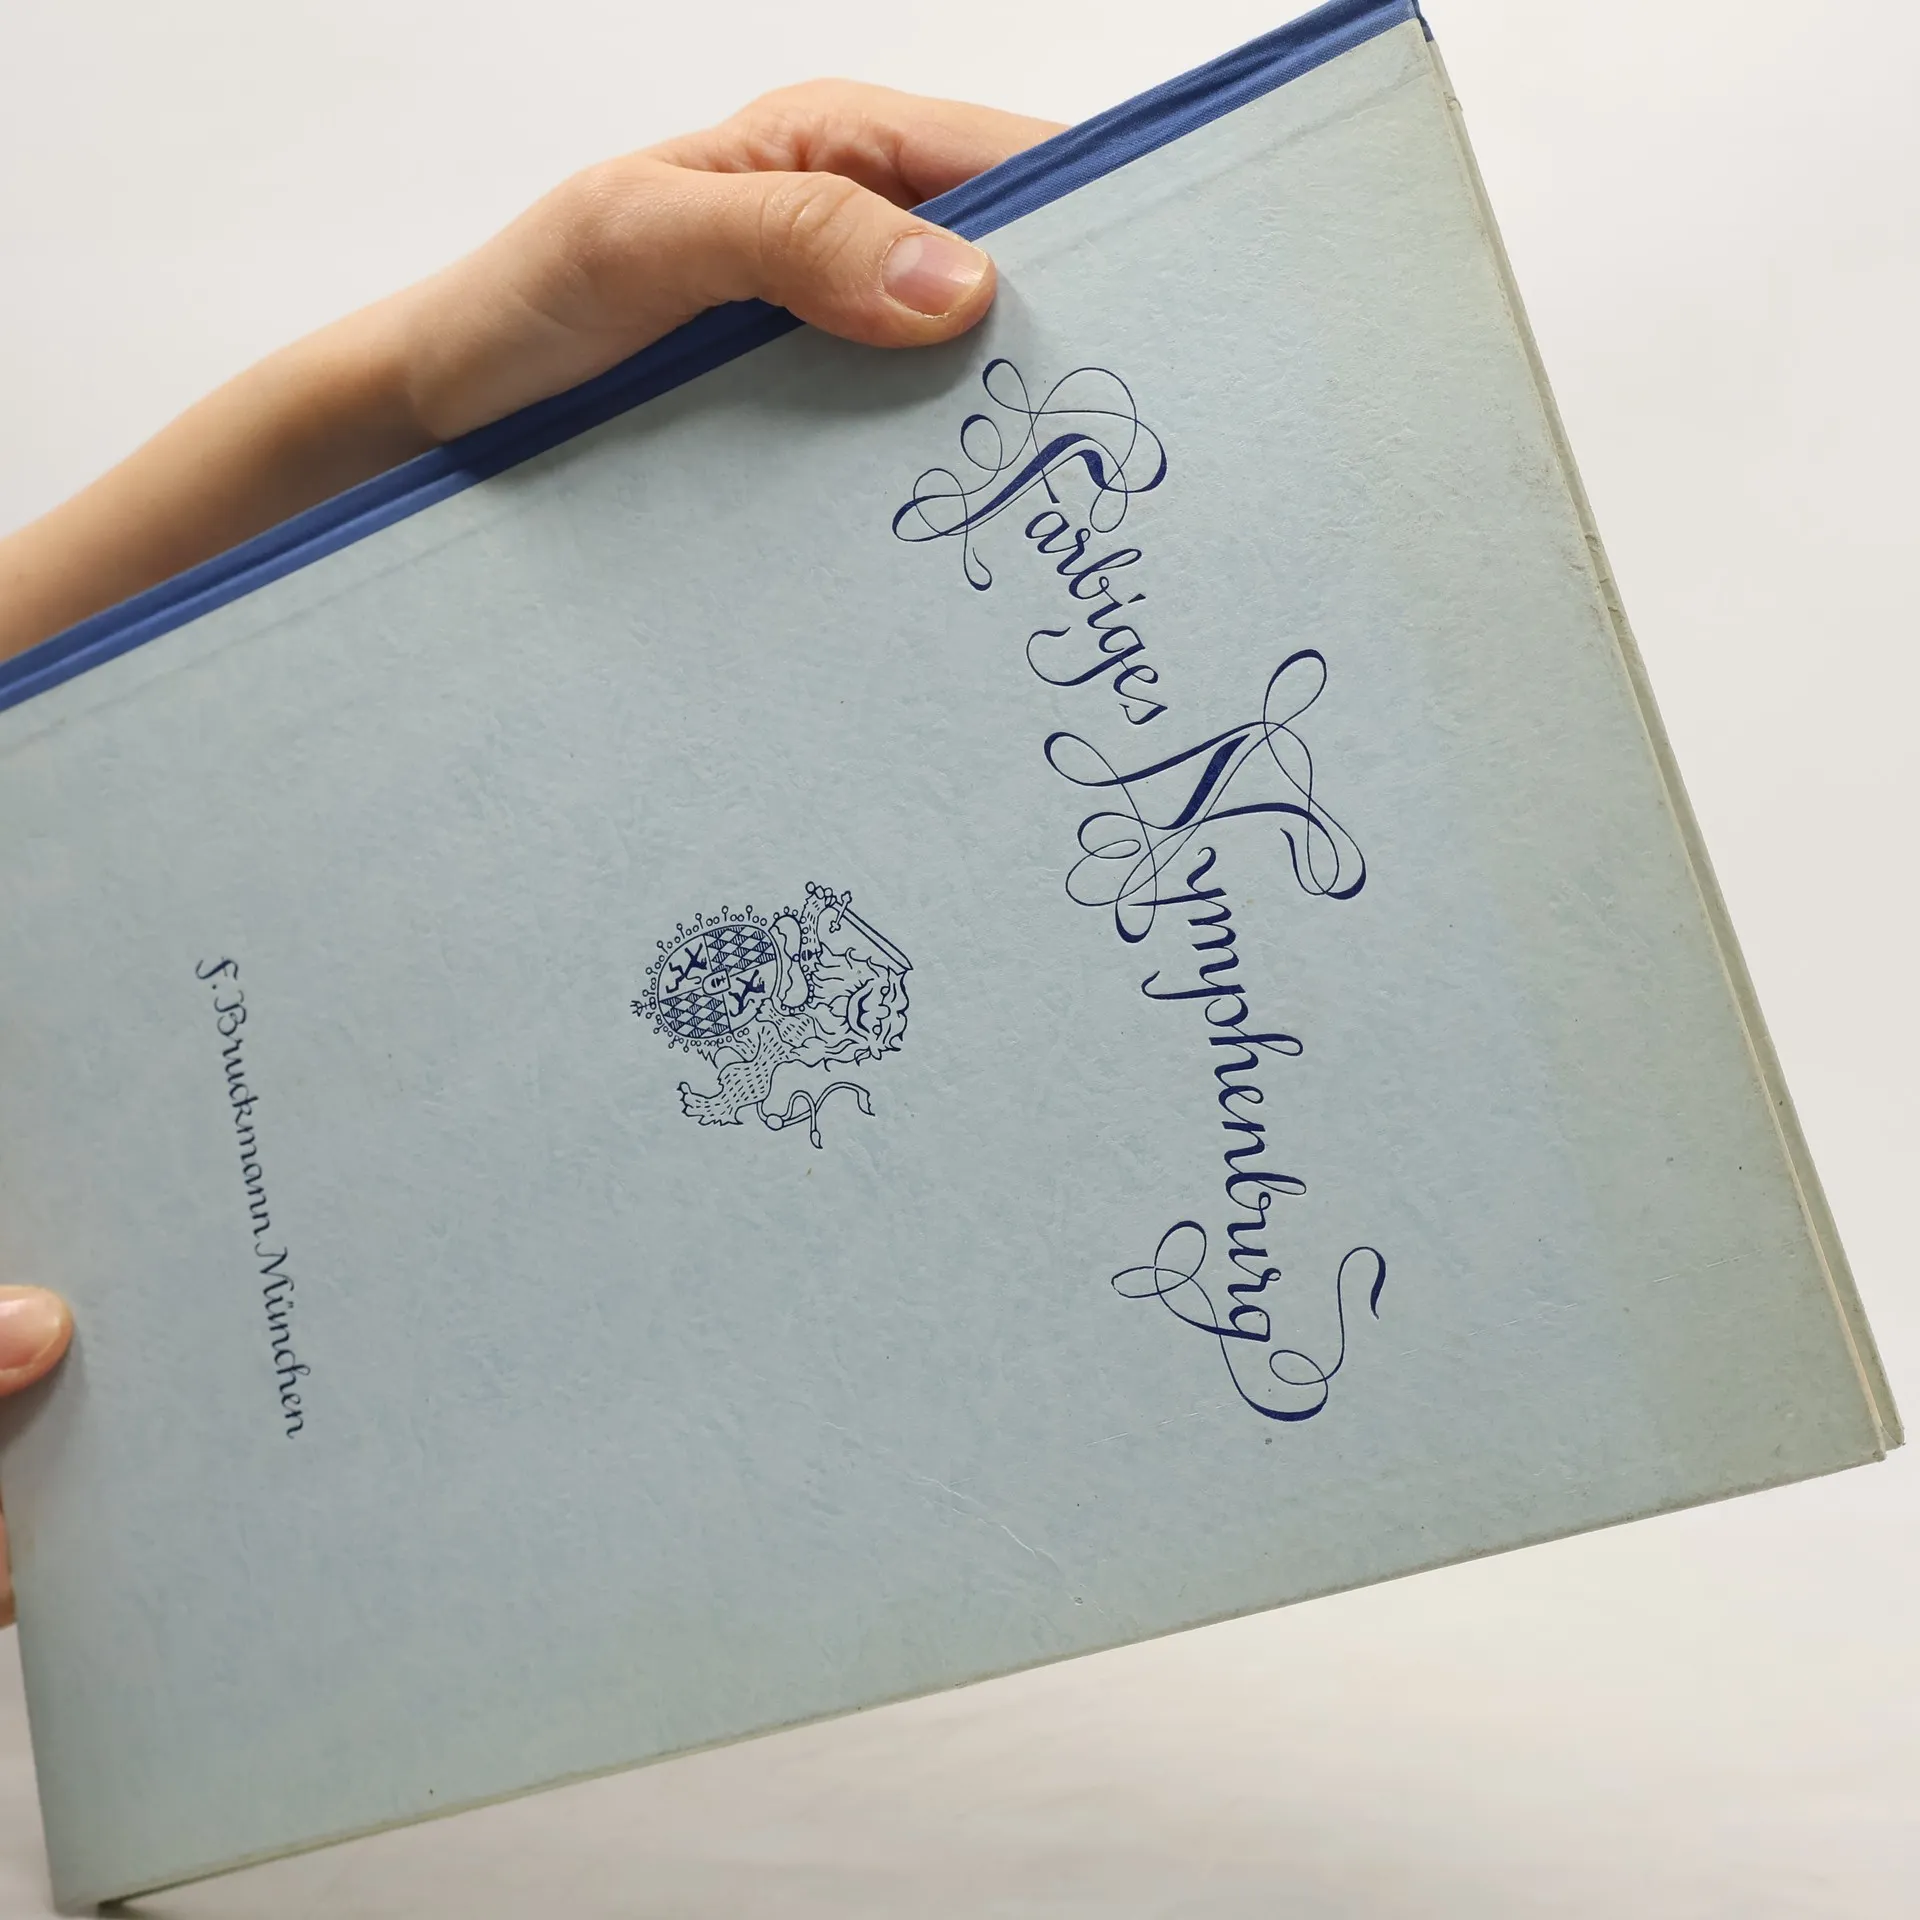 Farbiges
Nymphenburg
F. Bruckmann München